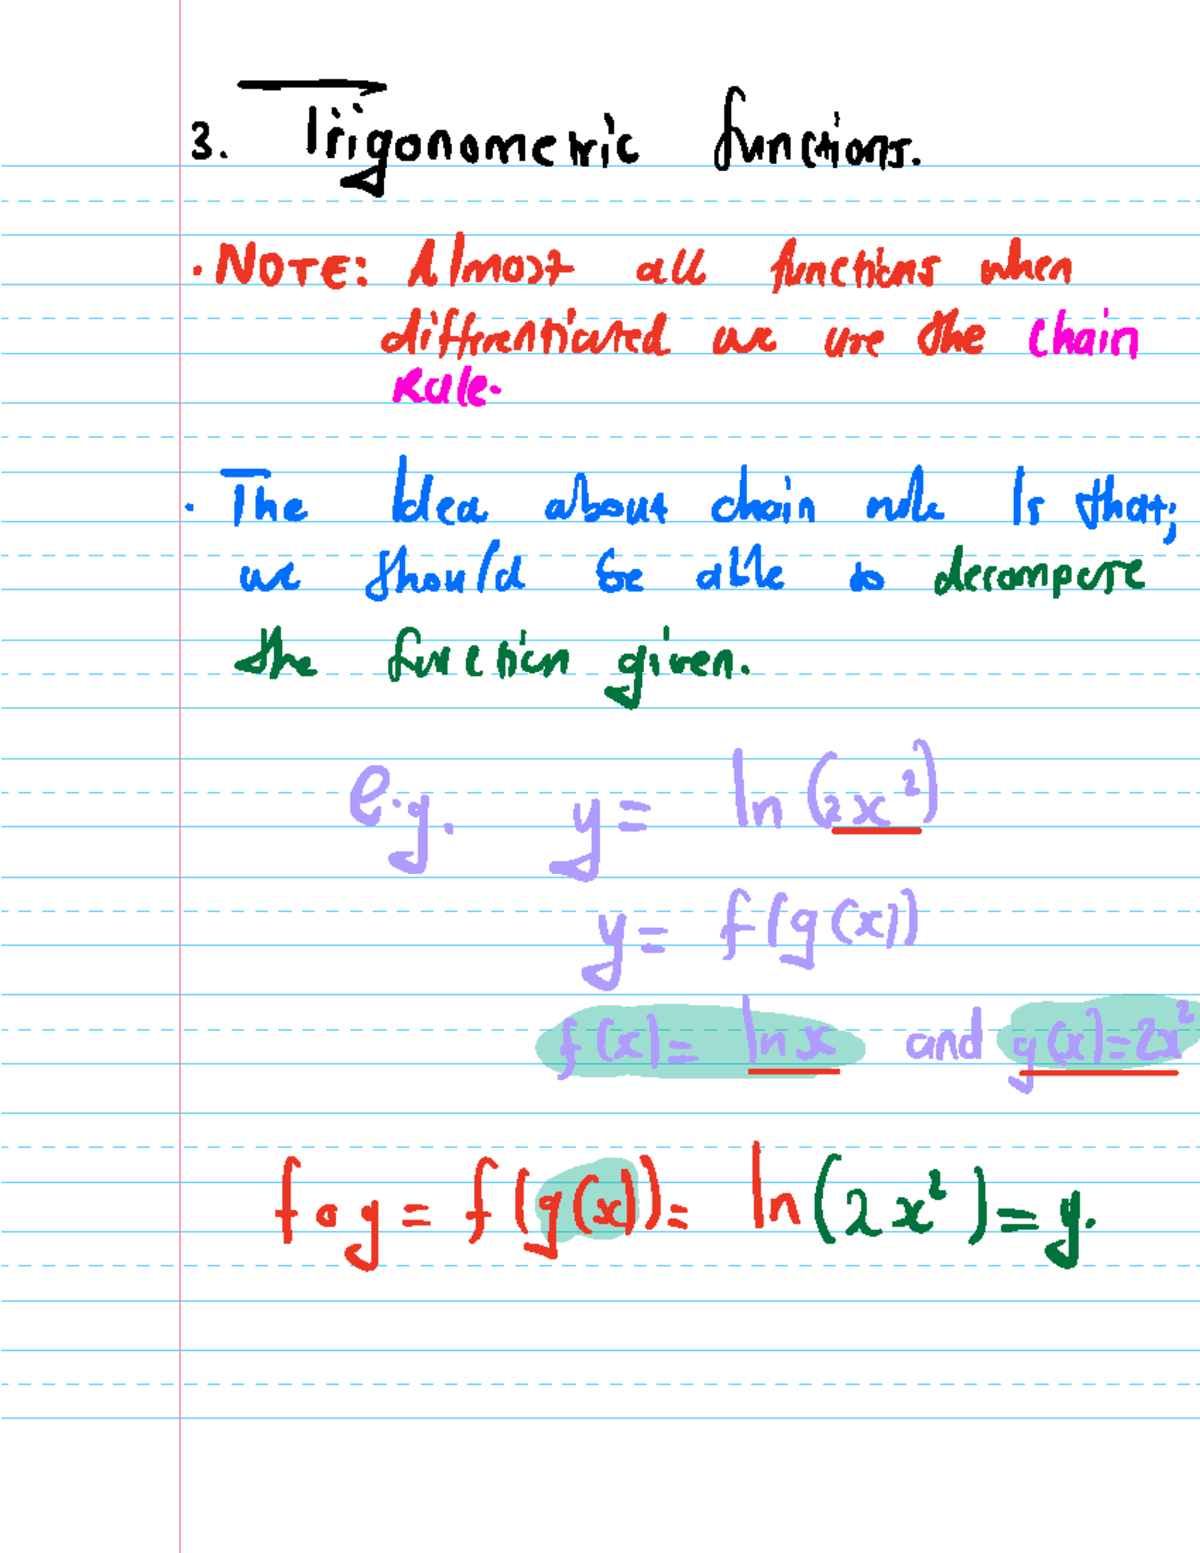 3. Trigonometric functions.
· NOTE: Almost all functions when
differentiated we use the chain
Rule.
· The Idea about chain rule Is that;
we should be able to decompose
the function given.
e.g. y = ln(2x²)
y = f(g(x))
f(x) = ln x and g(x) = 2x²
fog = f(g(x)) = ln(2x²) = y.